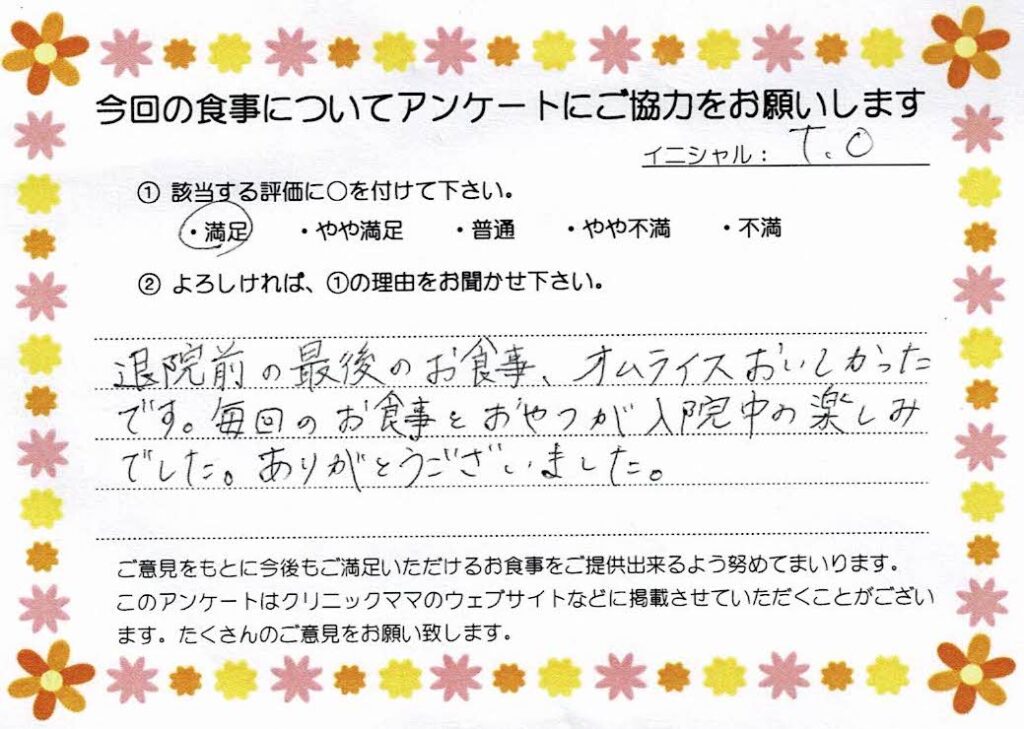 今回の食事についてアンケートにご協力をお願いします
イニシャル： T.O
① 該当する評価に○を付けて下さい。
・満足 ・やや満足 ・普通 ・やや不満 ・不満
② よろしければ、①の理由をお聞かせ下さい。
退院前の最後のお食事、オムライスおいしかった
です。毎回のお食事とおやつが入院中の楽しみ
でした。ありがとうございました。
ご意見をもとに今後もご満足いただけるお食事をご提供出来るよう努めてまいります。
このアンケートはクリニックママのウェブサイトなどに掲載させていただくことがござい
ます。たくさんのご意見をお願い致します。